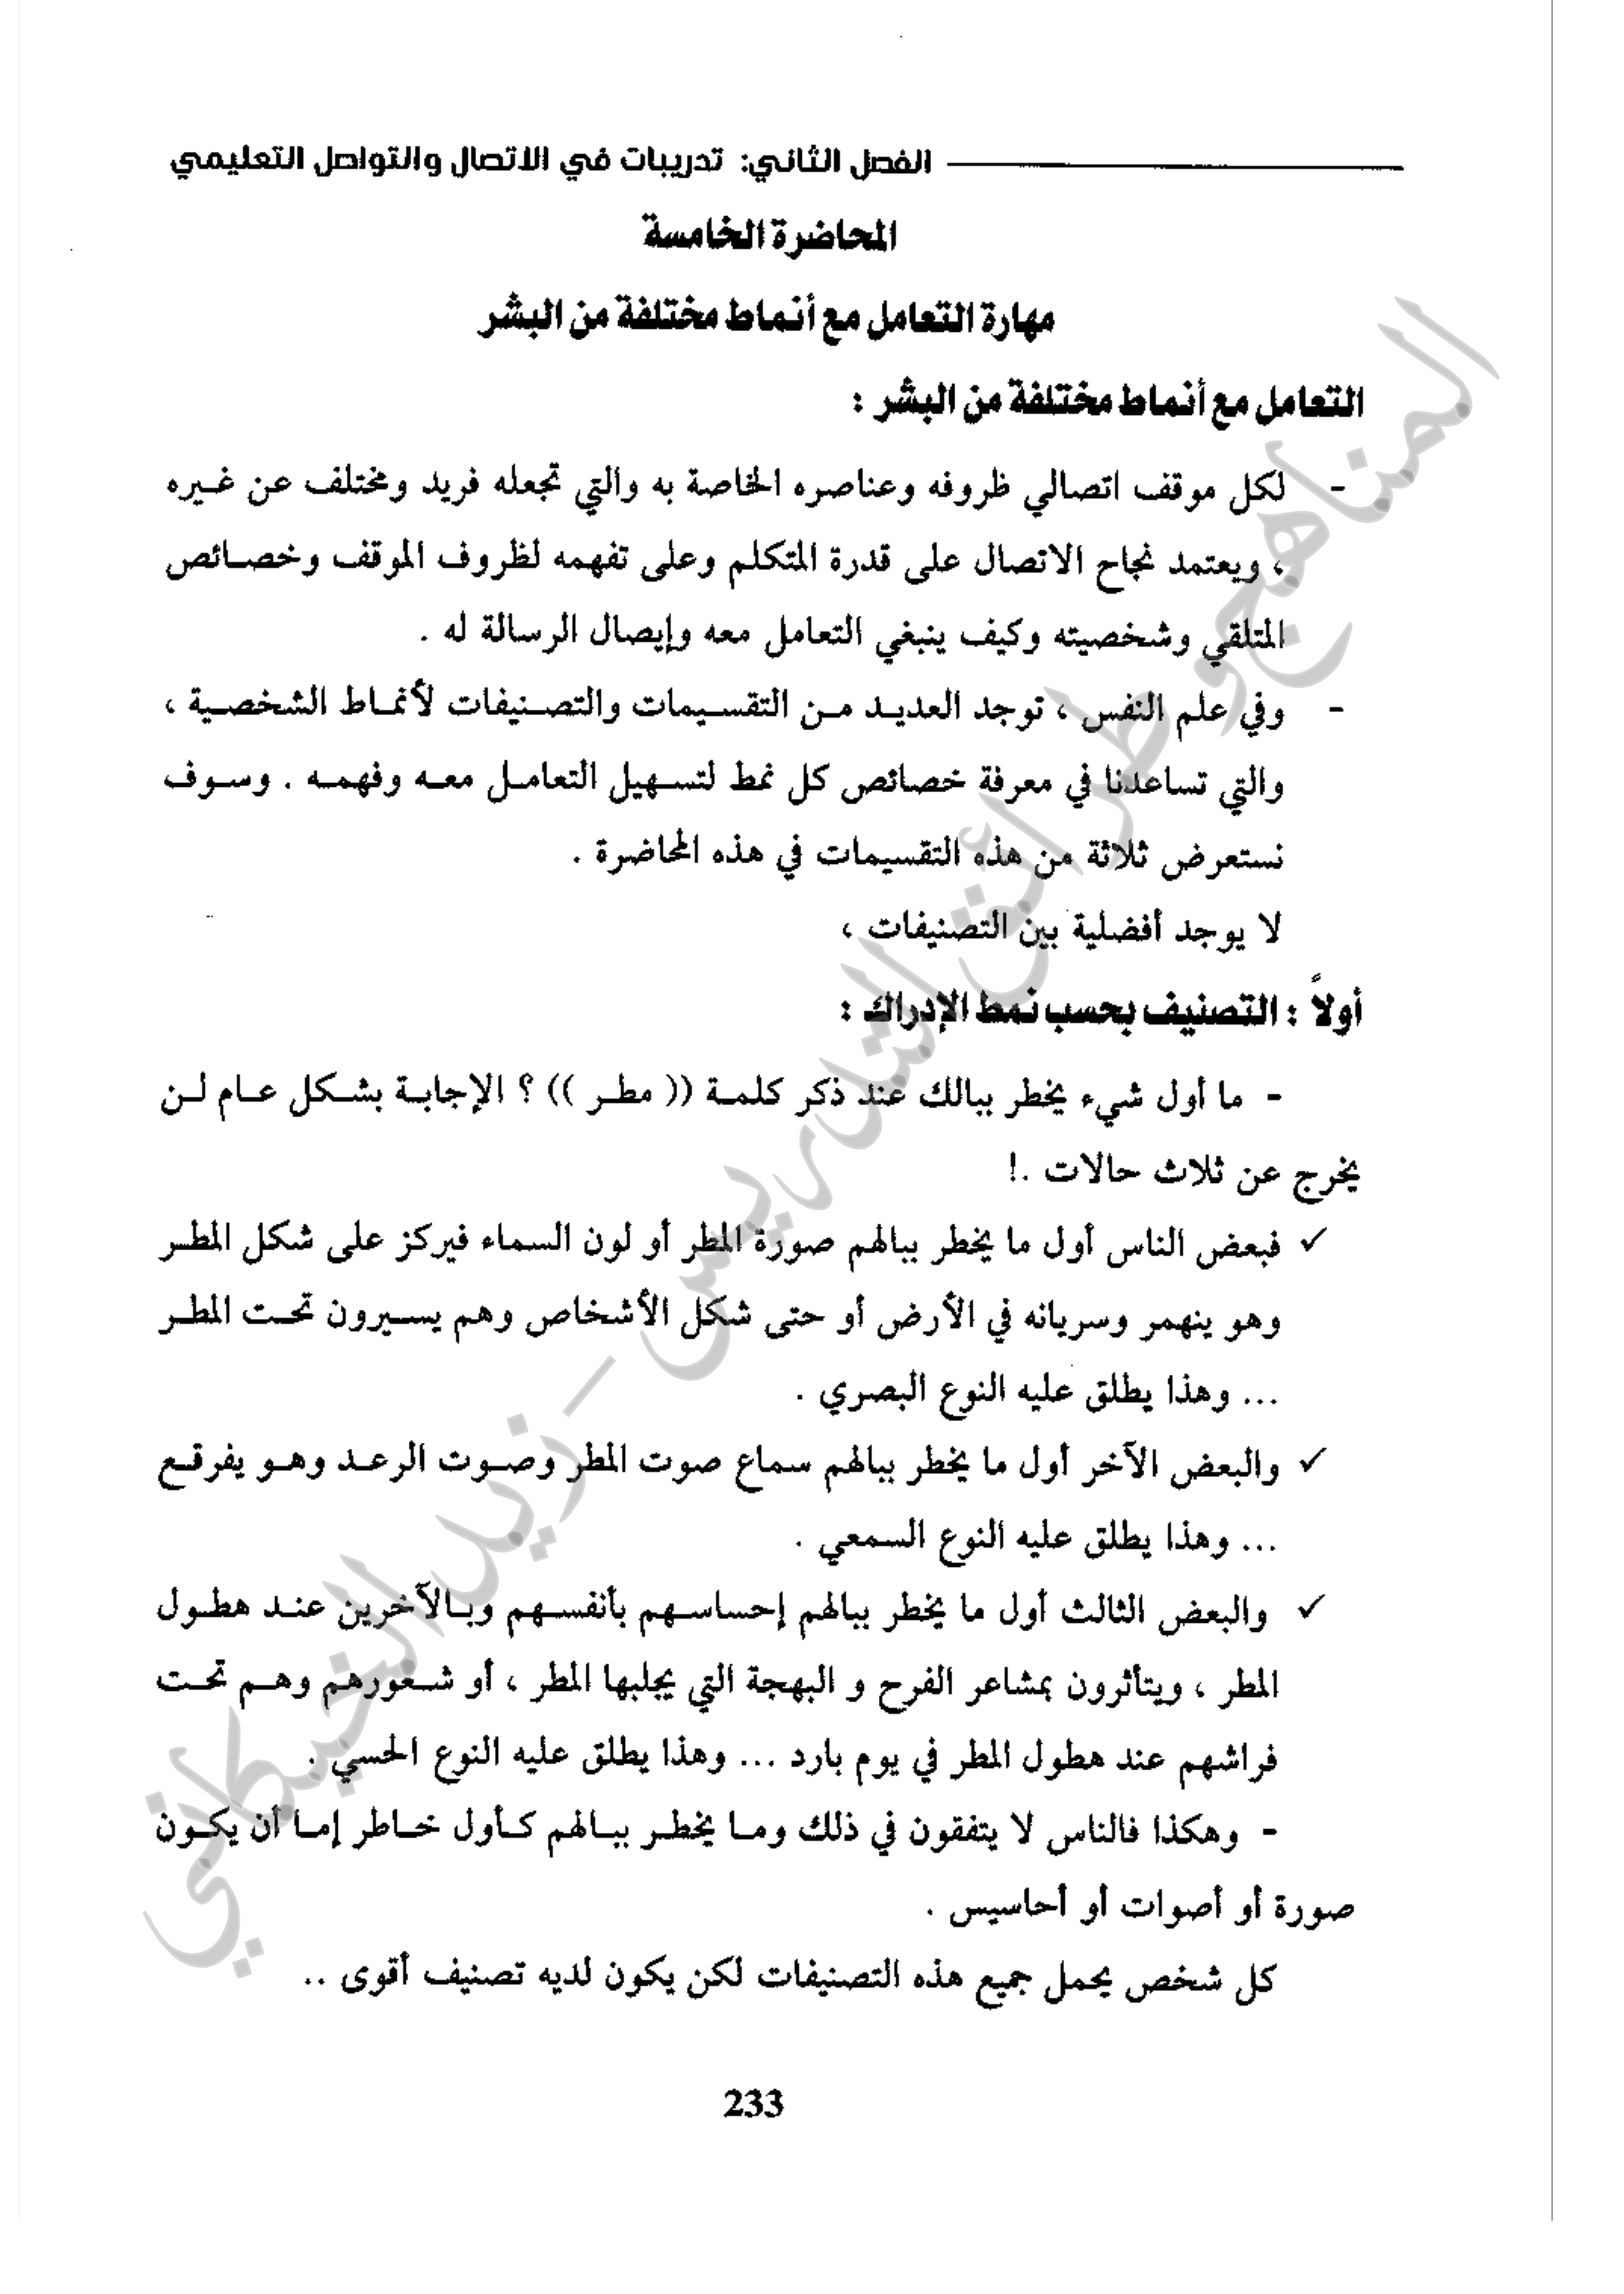 الفصل الثاني: تدريبات في الاتصال والتواصل التعليمي
المحاضرة الخامسة
مهارة التعامل مع أنماط مختلفة من البشر
التعامل مع أنماط مختلفة من البشر :
- لكل موقف اتصالي ظروفه وعناصره الخاصة به والتي تجعله فريد ومختلف عن غيره
، ويعتمد نجاح الاتصال على قدرة المتكلم وعلى تفهمه لظروف الموقف وخصائص
المتلقي وشخصيته وكيف ينبغي التعامل معه وإيصال الرسالة له .
- وفي علم النفس ، توجد العديد من التقسيمات والتصنيفات لأنماط الشخصية ،
والتي تساعدنا في معرفة خصائص كل نمط لتسهيل التعامل معه وفهمه . وسوف
نستعرض ثلاثة من هذه التقسيمات في هذه المحاضرة .
لا يوجد أفضلية بين التصنيفات ،
أولاً : التصنيف بحسب نمط الإدراك :
- ما أول شيء يخطر ببالك عند ذكر كلمة (( مطر )) ؟ الإجابة بشكل عام لن
يخرج عن ثلاث حالات .!
✓ فبعض الناس أول ما يخطر ببالهم صورة المطر أو لون السماء فيركز على شكل المطر
وهو ينهمر وسريانه في الأرض أو حتى شكل الأشخاص وهم يسيرون تحت المطر
... وهذا يطلق عليه النوع البصري .
✓ والبعض الآخر أول ما يخطر ببالهم سماع صوت المطر وصوت الرعد وهو يفرقع
... وهذا يطلق عليه النوع السمعي .
✓ والبعض الثالث أول ما يخطر ببالهم إحساسهم بأنفسهم وبالآخرين عند هطول
المطر ، ويتأثرون بمشاعر الفرح و البهجة التي يجلبها المطر ، أو شعورهم وهم تحت
فراشهم عند هطول المطر في يوم بارد ... وهذا يطلق عليه النوع الحسي .
- وهكذا فالناس لا يتفقون في ذلك وما يخطر ببالهم كأول خاطر إما أن يكون
صورة أو أصوات أو أحاسيس .
كل شخص يحمل جميع هذه التصنيفات لكن يكون لديه تصنيف أقوى ..
233
المناهج وطرائق التدريس - زيد الخيكاني